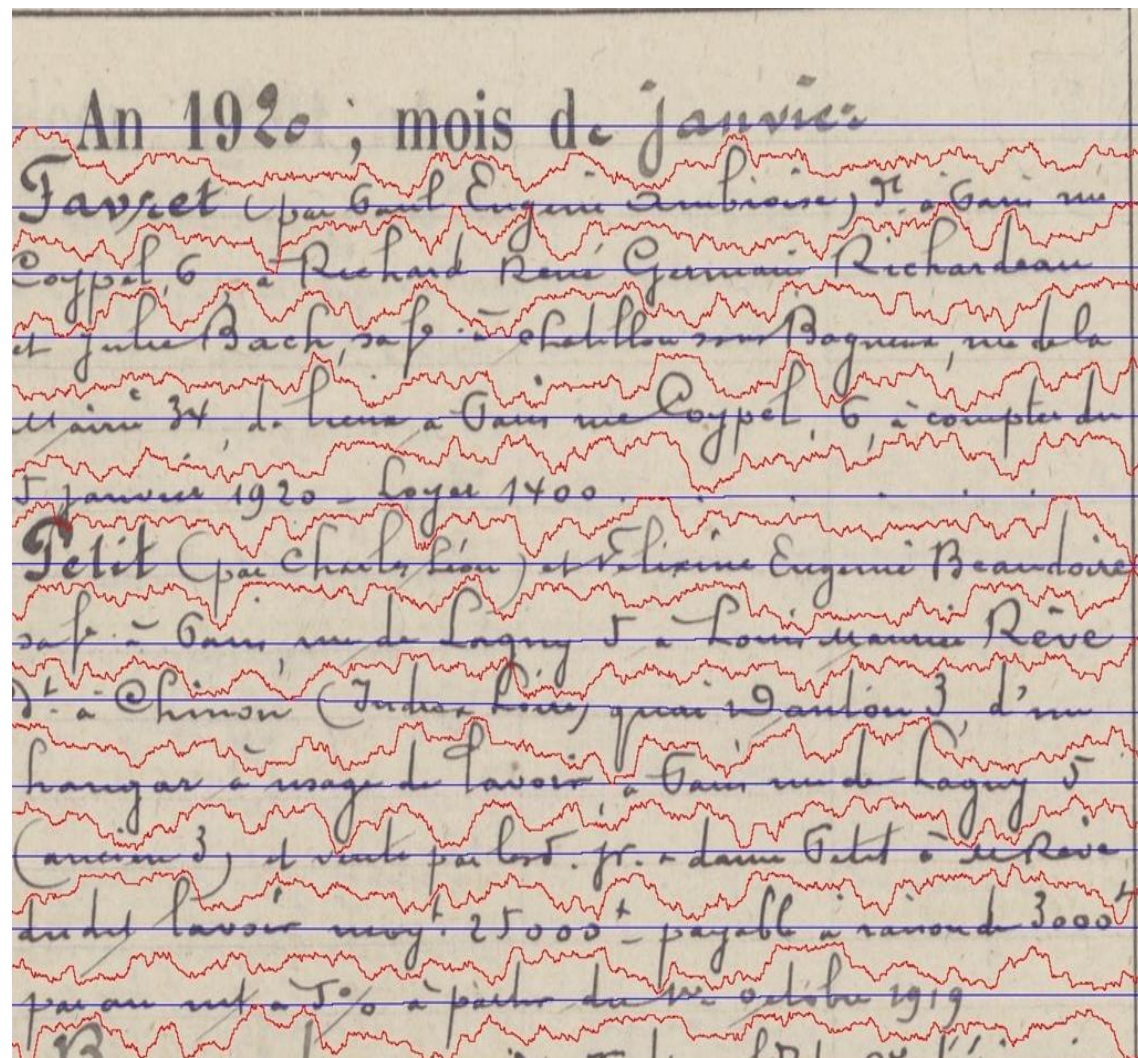 An 1920, mois de janvier
Favret (par Paul Eugène Ambroise) dt. à Paris rue
Coypel, 6 à Richard René Germain Richardeau
et Julie Bach, sa fe. à Chatillon sous Bagneux, rue de la
Mairie 34, de lieux à Paris rue Coypel, 6, à compter du
5 janvier 1920 - Loyer 1400 . . . . .
Petit (par Charles Léon) et Félixine Eugenie Beaudoire
sa fe. à Paris, rue de Lagny 5 à Louis Maurice Rêve
dt. à Chinon (Indre & Loire) quai Danton 3, d'un
hangar à usage de lavoir, à Paris rue de Lagny 5
(ancien 3) et vente par les d. Mr. & dame Petit à M Rêve
du dit lavoir moyt. 25000f - payable à raison de 3000f
par an int à 5% à partir du 1er octobre 1919